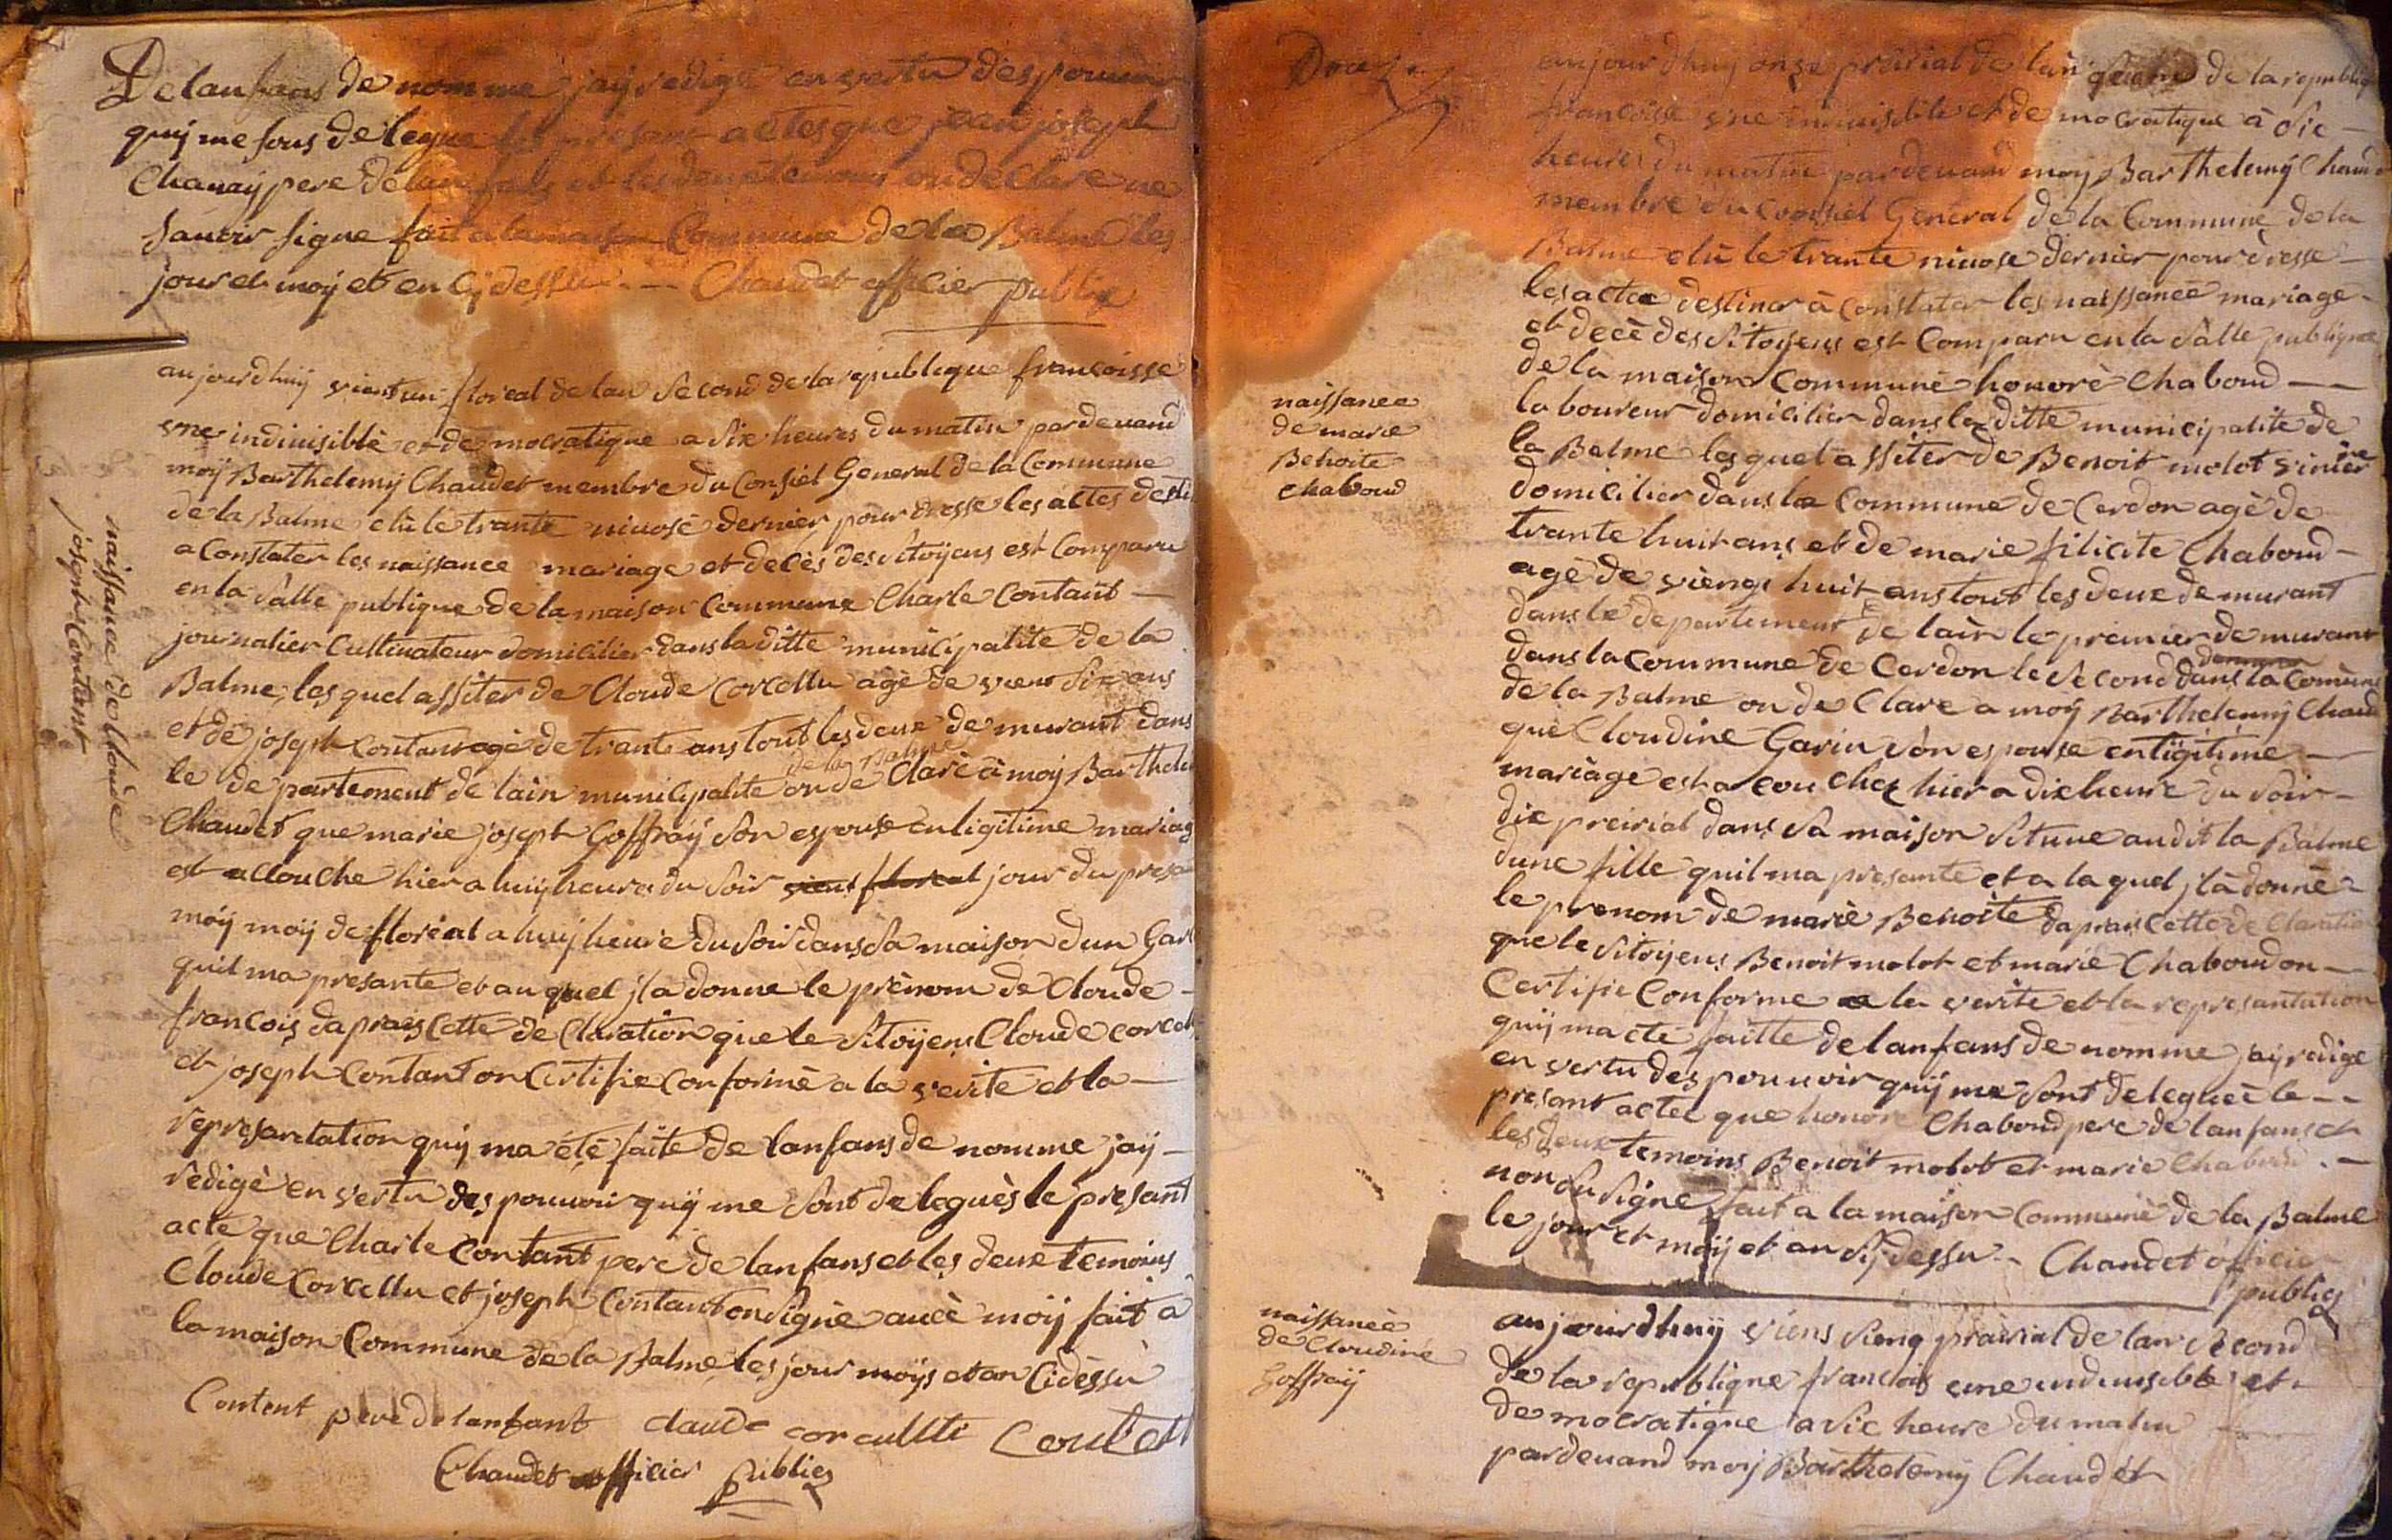 De lanfans de nomme jaÿ redigé en vertu des pouuoir
quÿ me sons delegue les presant actes que jean joseph
Chanaÿ pere de lanfans et les deux temoins on de Clare ne
sauoir signe fait a la maison Commune de la Balme les
jour et moÿ et en cÿ dessu. — Chaudet officier publiq
aujourdhuÿ vient un floreal de lan second de la republique francoisse
vne indiuisiblè et de mocratique a six heures du matin pardeuand
moÿ Barthelemÿ Chaudet membre du Consiel General de la Commune
de la Balme elù le trante niuosé dernier pour dresse les actes desti
a Constater les naissance mariage et decès des sitoÿens est Comparu
en la sâlle publique de la maison Commune Charle Contant —
journalier Cultiuateur domicilier dans la ditte municipalité de la
Balme, les quel assiter de Cloude Corcellu agè de vient six ans
et de joseph Contant agè de trante ans tout les deux de murant dans
de la Balme
le de partement de lain municipalite on de Clarè à moÿ Barthele
Chaudet que marie joseph Goffraÿ son espouse en ligitime mariag
est a Couche hier a huÿ heure du soir vient floreal jour du presa
moÿ moÿ de floréal a huÿ heure du soir dans sa maison dun Gar
quil ma presante et au quel jl a donne le prènom de Cloude —
francois daprais Cette de Claration que le sitoÿens Cloude corcell
et joseph Contant on Certifie Conformè a la verité et la —
représantation quÿ ma été faite de lanfans de nomme jaÿ —
rédigè en vertu des pouuoir quÿ me sont de leguès le presant
acte que Charle Contant pere de lanfans et les deux temoins
Cloude Corcellu et joseph Contant on signè auèc moÿ fait à
la maison Commune de la Balme les jour moÿs et an Cidèssu
Content père de lanfant claude corcullti Contet
Chaudet officier publiq
naissance de Cloude
joseph Contant
aujourdhuÿ onze prairial de lan de la republiq
francoise vne indiuisible et de mocratique à dix —
heures du matin pardeuand moÿ Barthelemÿ Chaud
membre du Consiel Général de la Commune de la
Balme elù le trante niuose dernier pour drèsse —
les actes destiner à Constater les naissancè mariage
et decè des sitoÿens est Comparu en la sâlle publique
de la maison Commune honorè Chaboud —
laboureur domicilier dans la ditte municipalité de
la Balme les quel assiter de Benoit molot
domicilier dans la Commune de Cerdon agè de
trante huit ans et de marie filicite Chaboud —
agè de viengt huit ans tout les deux de murant
dans le departement de lain le prèmier de murant
dans la commune de Cerdon le second dans la Comùne
de la Balme on de Clare a moÿ Barthelemÿ Chaud
què Cloudine Garin sôn espouse en ligitime —
mariage est a couchez hier a dix heure du soir —
dix preirial dans sa maison situue audit la Balme
dune fille quil ma presante et a la quel jl à donnè
le prenom de mariè Benoite daprais Cette de Claratio
que le sitoÿens Benoit molot et marie Chaboud on —
Certifie Conforme a la verite et la representation
quÿ ma été faitte de lanfans de nomme jaÿ redige
en vertu des pouuoir quÿ me sont deleguèe le —
presant actes que honore Chaboud pere de lanfans et
les deux temoins Benoit molot et marie Chaboud —
non su signe fait a la maison Commune de la Balme
le jour et moÿ et an sÿ dessu — Chaudet officier
publiq
naissance
de marie
Benoite
Chaboud
naissancè
de Cloudine
Goffraÿ
aujourdhuÿ viens sienq prairial de lan second
de la republique francois une indiuisible et
de mocratique a six heure du matin
pardeuand moÿ Barthelemÿ Chaudet